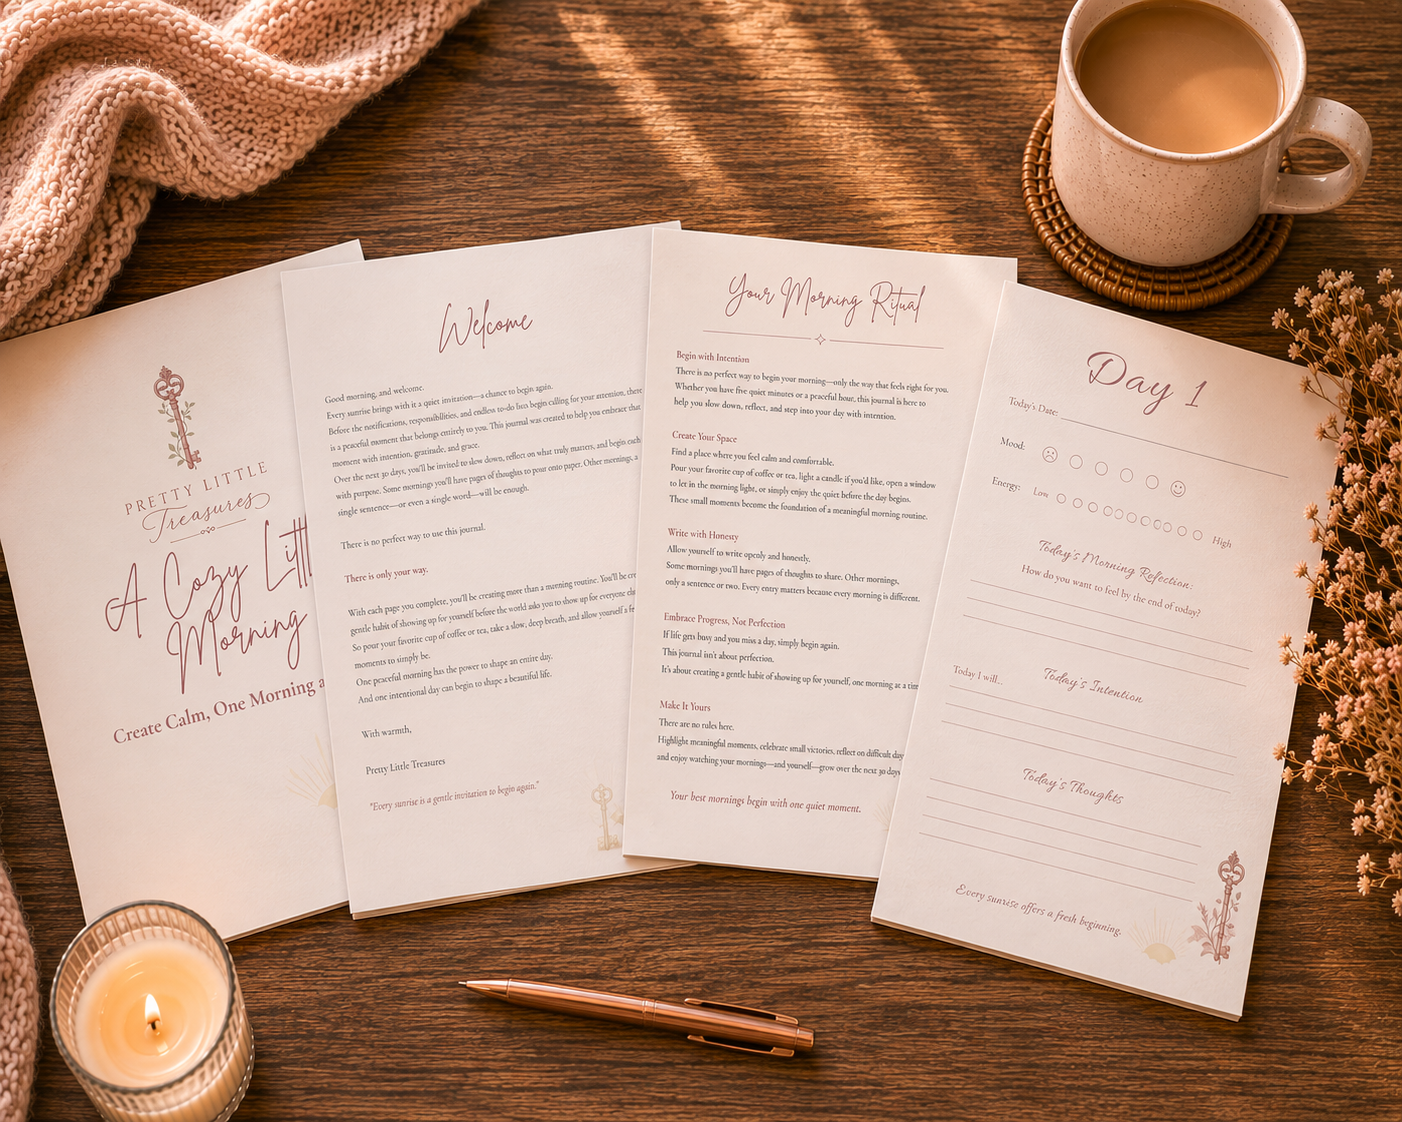 PRETTY LITTLE
Treasures
A Cozy Littl
Morning
Create Calm, One Morning a
Welcome
Good morning, and welcome.
Every sunrise brings with it a quiet invitation—a chance to begin again.
Before the notifications, responsibilities, and endless to-do lists begin calling for your attention, there
is a peaceful moment that belongs entirely to you. This journal was created to help you embrace that
moment with intention, gratitude, and grace.
Over the next 30 days, you'll be invited to slow down, reflect on what truly matters, and begin each
with purpose. Some mornings you'll have pages of thoughts to pour onto paper. Other mornings, a
single sentence—or even a single word—will be enough.
There is no perfect way to use this journal.
There is only your way.
With each page you complete, you'll be creating more than a morning routine. You'll be cre
gentle habit of showing up for yourself before the world asks you to show up for everyone
So pour your favorite cup of coffee or tea, take a slow, deep breath, and allow yourself a fe
moments to simply be.
One peaceful morning has the power to shape an entire day.
And one intentional day can begin to shape a beautiful life.
With warmth,
Pretty Little Treasures
"Every sunrise is a gentle invitation to begin again."
Your Morning Ritual
Begin with Intention
There is no perfect way to begin your morning—only the way that feels right for you.
Whether you have five quiet minutes or a peaceful hour, this journal is here to
help you slow down, reflect, and step into your day with intention.
Create Your Space
Find a place where you feel calm and comfortable.
Pour your favorite cup of coffee or tea, light a candle if you'd like, open a window
to let in the morning light, or simply enjoy the quiet before the day begins.
These small moments become the foundation of a meaningful morning routine.
Write with Honesty
Allow yourself to write openly and honestly.
Some mornings you'll have pages of thoughts to share. Other mornings,
only a sentence or two. Every entry matters because every morning is different.
Embrace Progress, Not Perfection
If life gets busy and you miss a day, simply begin again.
This journal isn't about perfection.
It's about creating a gentle habit of showing up for yourself, one morning at a tim
Make It Yours
There are no rules here.
Highlight meaningful moments, celebrate small victories, reflect on difficult day
and enjoy watching your mornings—and yourself—grow over the next 30 days
Your best mornings begin with one quiet moment.
Day 1
Today's Date:
Mood:
Energy: Low High
Today's Morning Refection:
How do you want to feel by the end of today?
Today's Intention
Today I will...
Today's Thoughts
Every sunrise offers a fresh beginning.